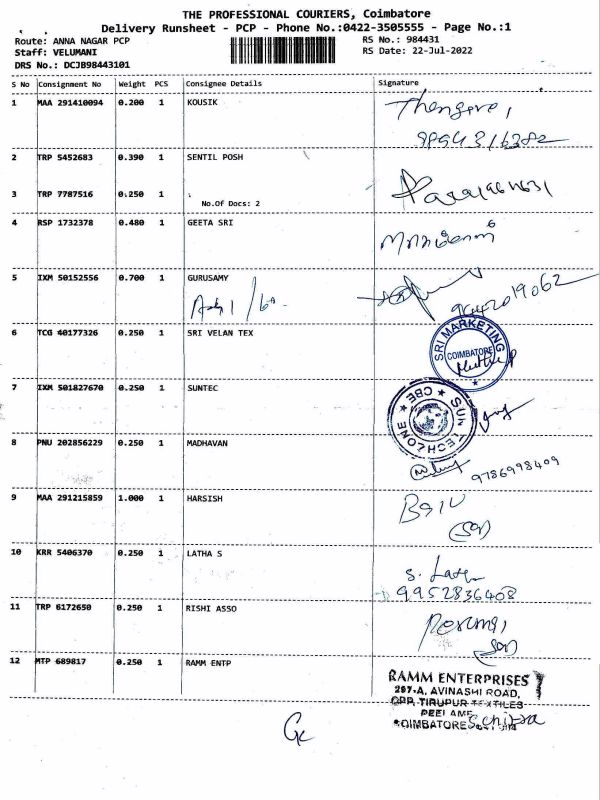 THE PROFESSIONAL COURIERS, Coimbatore
Delivery Runsheet - PCP - Phone No.:0422-3505555 - Page No.:1
Route: ANNA NAGAR PCP
RS No.: 984431
Staff: VELUMANI
RS Date: 22-Jul-2022
DRS No.: DCJB98443101
S No Consignment No Weight PCS Consignee Details Signature
1 MAA 291410094 0.200 1 KOUSIK
2 TRP 5452683 0.390 1 SENTIL POSH
3 TRP 7787516 0.250 1
No.Of Docs: 2
4 RSP 1732378 0.480 1 GEETA SRI
5 IXM 50152556 0.700 1 GURUSAMY
9442019062
6 TCG 40177326 0.250 1 SRI VELAN TEX
SRI MARKETING
COIMBATORE
7 IXM 501827670 0.250 1 SUNTEC
SUN TECHZONE
CBE
8 PNU 202856229 0.250 1 MADHAVAN
9786998409
9 MAA 291215859 1.000 1 HARSISH
10 KRR 5406370 0.250 1 LATHA S
S. Latha
9952836408
11 TRP 6172650 0.250 1 RISHI ASSO
12 MTP 689817 0.250 1 RAMM ENTP
RAMM ENTERPRISES
297-A, AVINASHI ROAD,
OPP. TIRUPUR TEXTILES
COIMBATORE